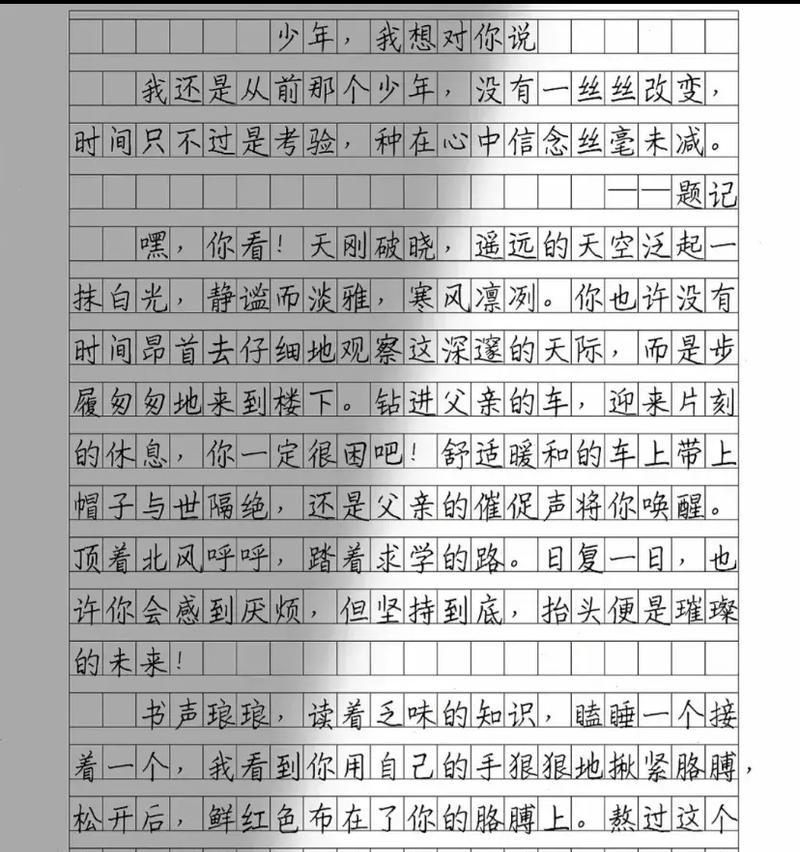 少年，我想对你说
我还是从前那个少年，没有一丝丝改变，
时间只不过是考验，种在心中信念丝毫未减。
——题记
嘿，你看！天刚破晓，遥远的天空泛起一
抹白光，静谧而淡雅，寒风凛冽。你也许没有
时间昂首去仔细地观察这深邃的天际，而是步
履匆匆地来到楼下。钻进父亲的车，迎来片刻
的休息，你一定很困吧！舒适暖和的车上带上
帽子与世隔绝，还是父亲的催促声将你唤醒。
顶着北风呼呼，踏着求学的路。日复一日，也
许你会感到厌烦，但坚持到底，抬头便是璀璨
的未来！
书声琅琅，读着乏味的知识，瞌睡一个接
着一个，我看到你用自己的手狠狠地揪紧胳膊，
松开后，鲜红色布在了你的胳膊上。熬过这个